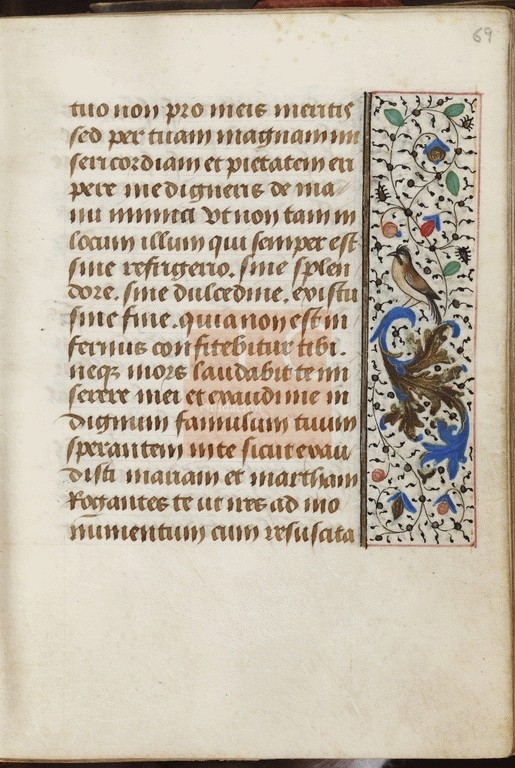 69
tuo non pro meis meritis
sed per tuam magnam mi
sericordiam et pietatem eri
pere me digneris de ma
nu inimici vt non tam in
locum illum qui semper est
sine refrigerio. sine splen
dore. sine dulcedine. existu
sine fine. quia non est in
fernus confitebitur tibi.
neq3 mors laudabit te mi
serere mei et exaudi me in
dignum famulum tuum
sperantem in te sicut exau
disti mariam et martham
Rogantes te ut ires ad mo
numentum cum resuscita